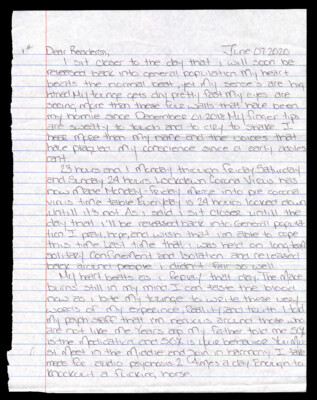 1st
Dear Readers, June 07, 2020
I sit closer to the day that I will soon be
released back into general population. My heart
beats the normal beat, yet my senses are hig
htned. My tounge gets dry pretty fast. My eyes are
seeing more than these four walls that have been
my homie since December 01 2018. My finger tips
are sweaty to touch and to clap to shake. I
hear more than my name and the voices that
have plauged my conscience since a early adoles
cent.
23 hours and 1 Monday through Friday Saturday
and Sunday 24 hours Lockdown. Corona Virus has
now made Monday-Friday mere into pre corona
virus time table. Everyday is 24 hours locked down
untill it's not. As I said I sit closer untill the
day that I'll be released back into General popula
tion. I pray, hope, and wish that I'm able to cope
this time. Last time that I was held on long term
solitary confinement and isolation and released
back around people I didn't fair so well.
My heart beats as I replay that day. The mace
burns still in my mind. I can taste the blood
now as I bite my tounge to write these very
words of my experience, reality, and truth. I told
my psych staff that I'm nervous around those who
are not like me. Years ago my Father told me 50%
is the medication and 50% is I love because you mu
st meet in the middle and join in harmony. I take
meds for audio psychosis 2 times a day. Enough to
knockout a fricking horse.